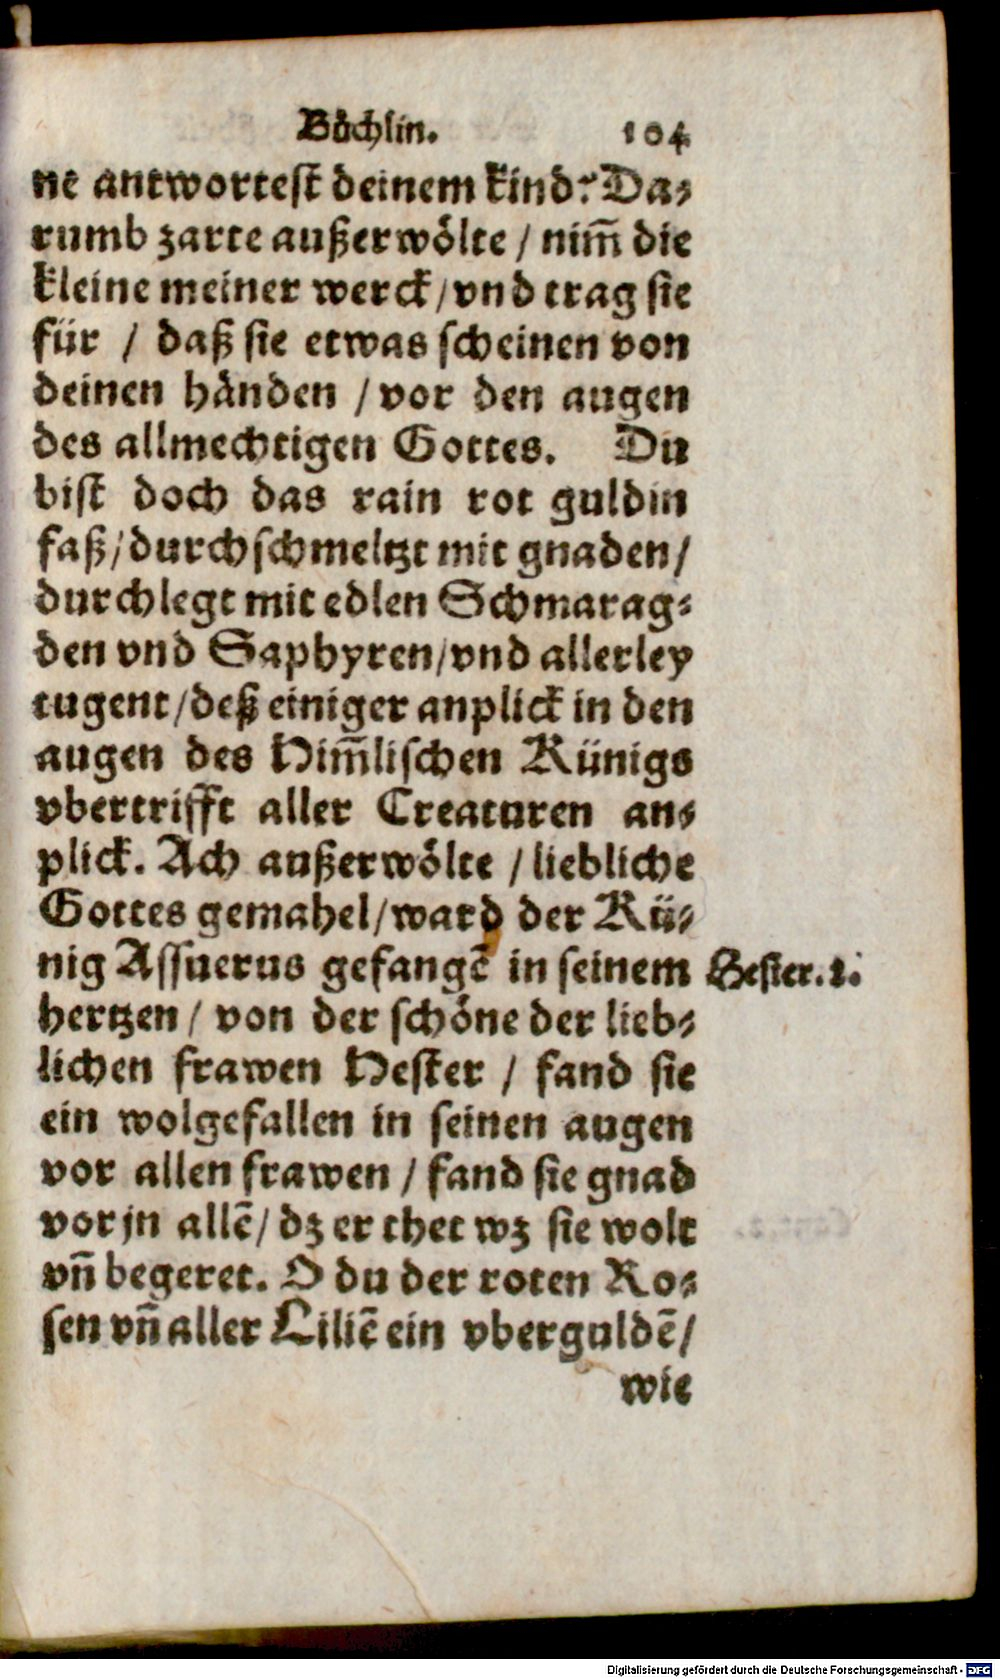 Bůchlin. 104
ne antwortest deinem kind? Da-
rumb zarte außerwölte / nim̃ die
kleine meiner werck / vnd trag sie
für / daß sie etwas scheinen von
deinen händen / vor den augen
des allmechtigen Gottes. Du
bist doch das rain rot guldin
faß / durchschmeltzt mit gnaden /
durchlegt mit edlen Schmarag-
den vnd Saphyren / vnd allerley
tugent / deß einiger anplick in den
augen des Him̃lischen Künigs
vbertrifft aller Creaturen an-
plick. Ach außerwölte / liebliche
Gottes gemahel / ward der Kü-
nig Assuerus gefangẽ in seinem
Hester. 2.
hertzen / von der schöne der lieb-
lichen frawen Hester / fand sie
ein wolgefallen in seinen augen
vor allen frawen / fand sie gnad
vor jn allẽ / dz er thet wz sie wolt
vñ begeret. O du der roten Ro-
sen vñ aller Liliẽ ein vberguldẽ /
wie
Digitalisierung gefördert durch die Deutsche Forschungsgemeinschaft - DFG